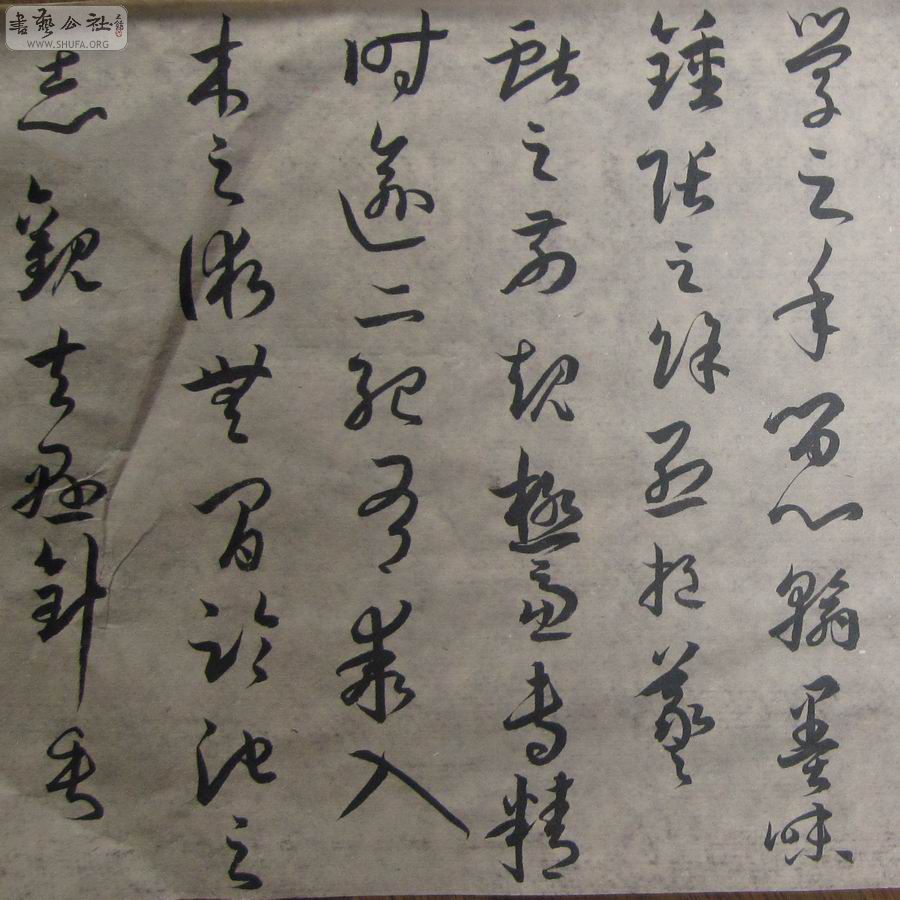 書藝公社
WWW.SHUFA.ORG
學之年留心翰墨味
鍾張之餘烈挹羲
獻之前規極慮專精
時逾二紀有乖入
木之術無間臨池之
志觀夫懸針垂